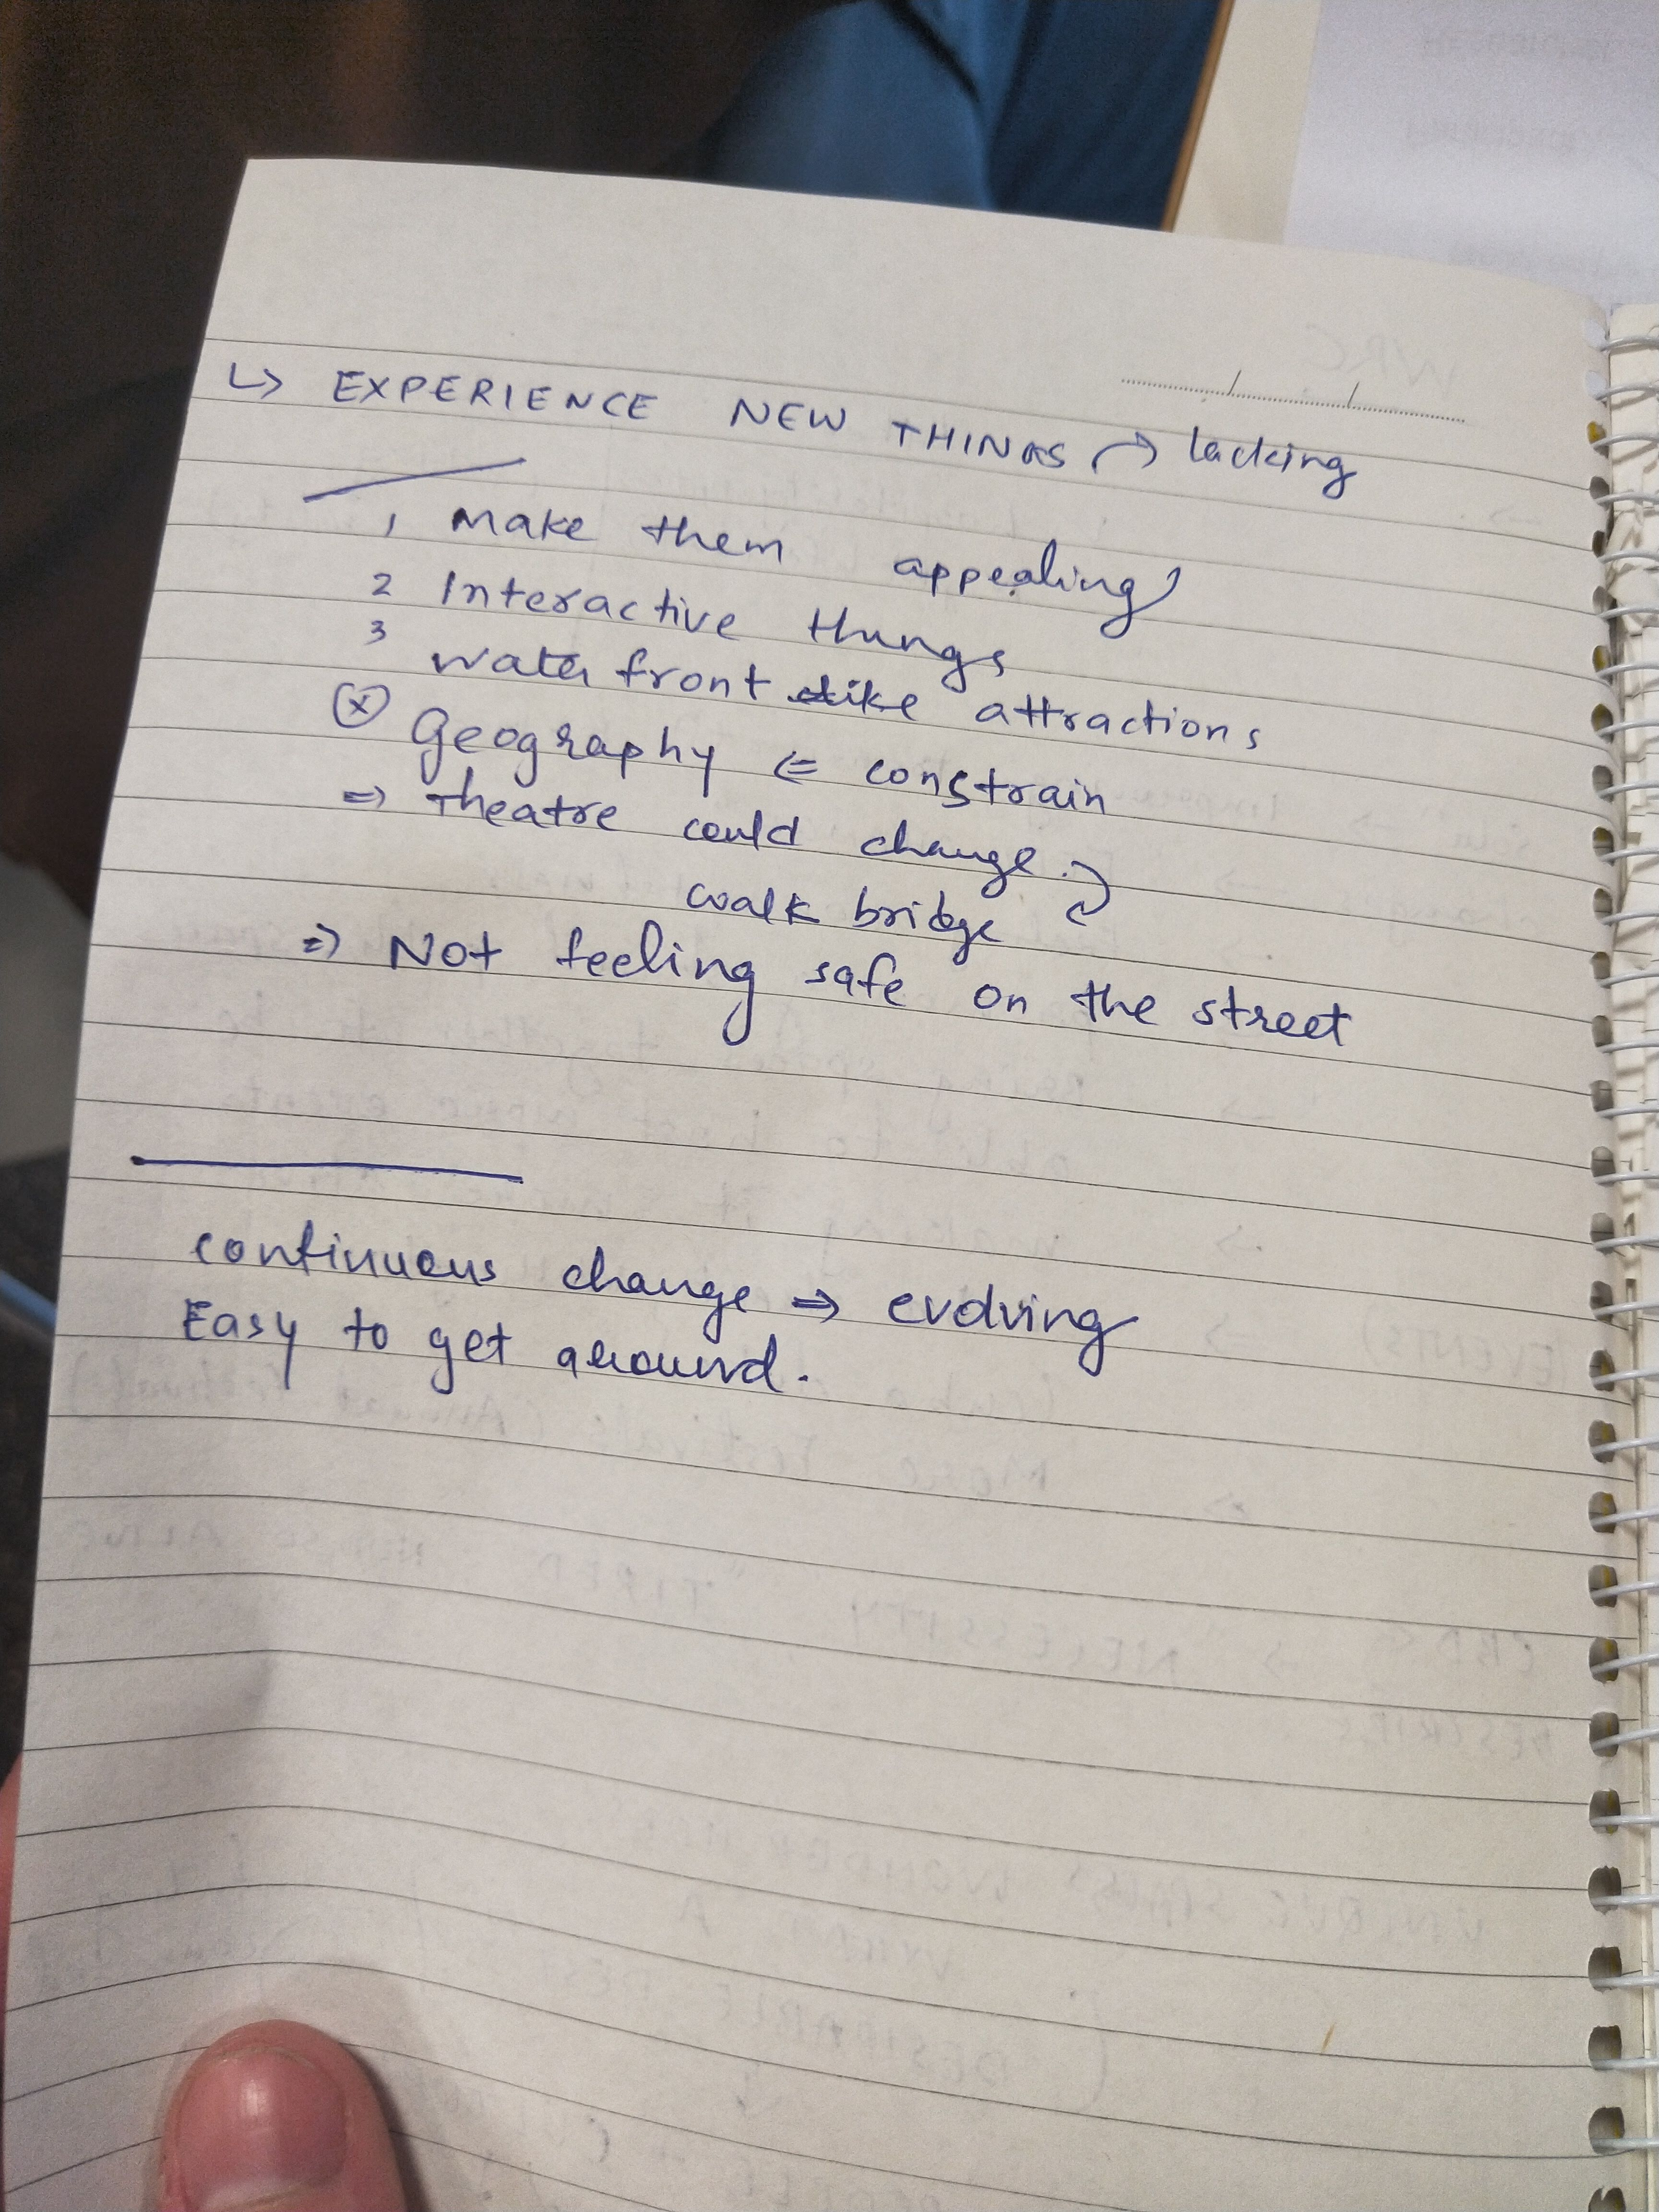 ↳ EXPERIENCE NEW THINGS → lacking
1 Make them appealing
2 Interactive things
3 water front like attractions
ⓧ Geography ⇐ constrain
⇒ Theatre could change.
walk bridge
⇒ Not feeling safe on the street
continuous change ⇒ evolving
Easy to get around.